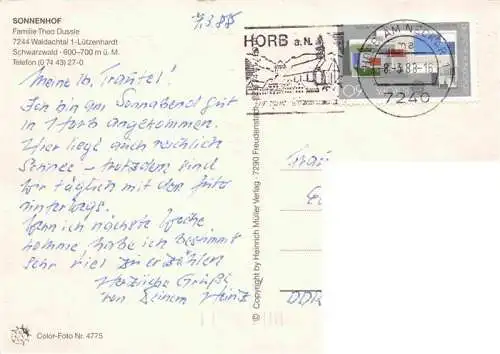 SONNENHOF
Familie Theo Dussle
7244 Waldachtal 1-Lützenhardt
Schwarzwald · 600-700 m ü. M.
Telefon (0 74 43) 27-0
7.3.88
Meine lb. Trautel!
Ich bin am Sonnabend gut
in Horb angekommen.
Hier liegt auch reichlich
Schnee - trotzdem sind
wir täglich mit dem Auto
unterwegs.
Wenn ich nächste Woche
komme, habe ich bestimmt
sehr viel zu erzählen
Herzliche Grüße
von Deinem Heinz
Color-Foto Nr. 4775
© Copyright by Heinrich Müller Verlag · 7290 Freudenstadt
HORB a.N.
AM NECKAR
7240
DDR